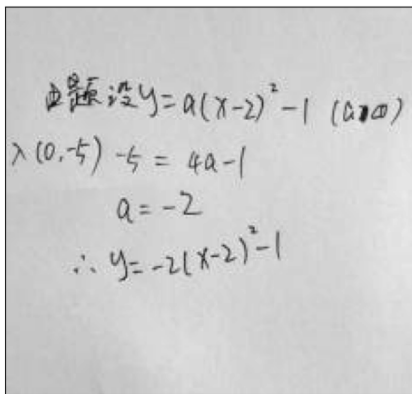 由题设y=a(x-2)²-1 (a≠0)
入(0,-5) -5=4a-1
a=-2
∴ y=-2(x-2)²-1